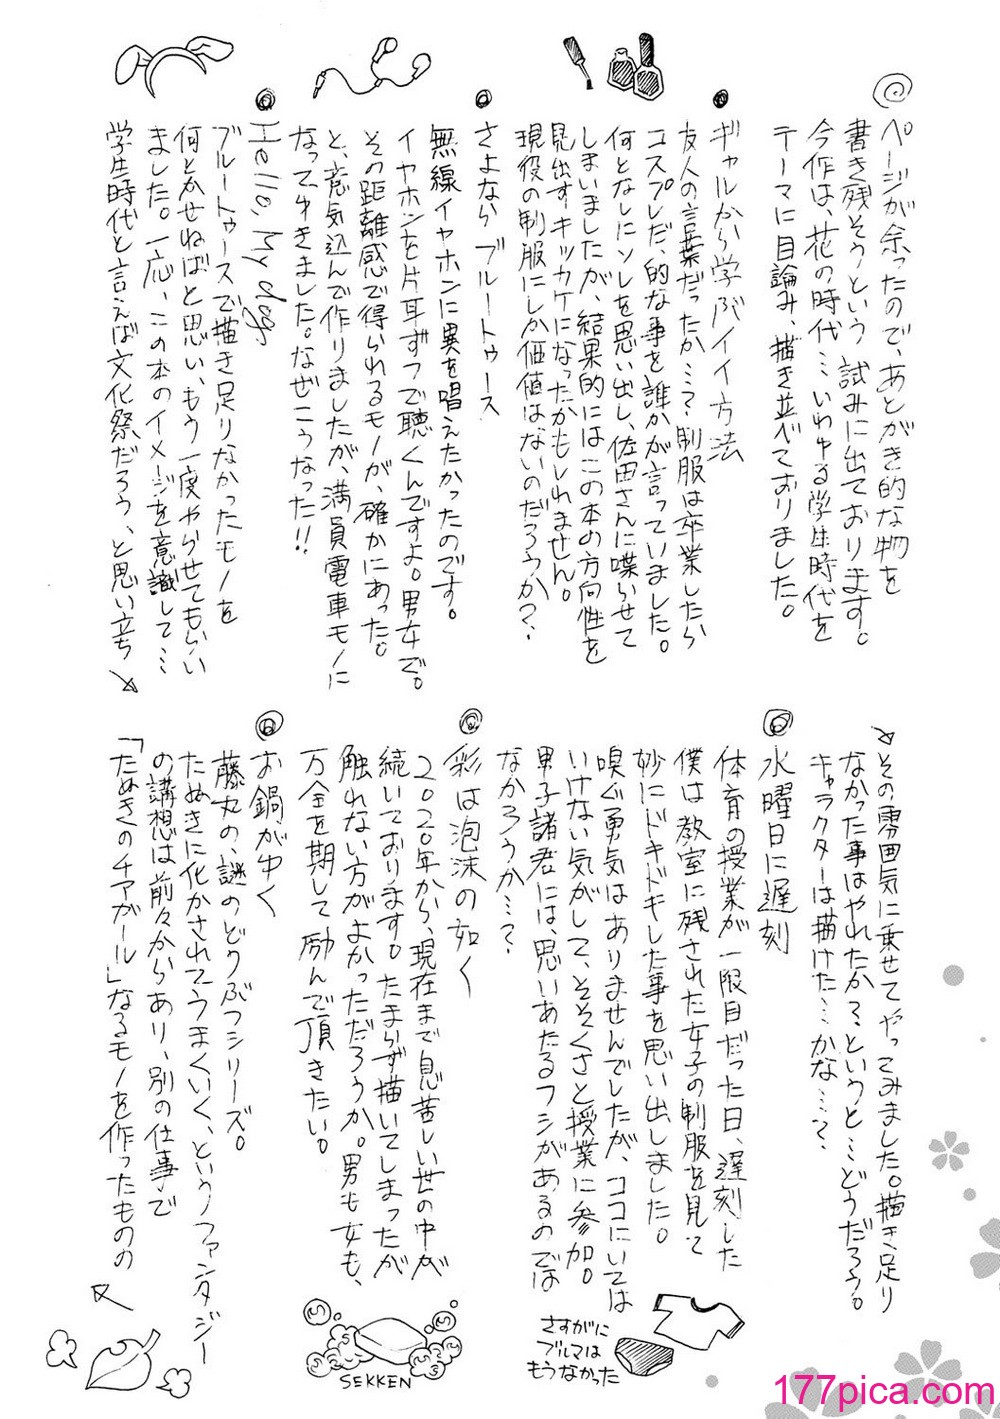 ページが余ったので、あとがき的な物を
書き残そうという試みに出ております。
今作は、花の時代…いわゆる学生時代を
テーマに目論み、描き並べておりました。
ギャルから学ぶイイ方法
友人の言葉だったか…?制服は卒業したら
コスプレだ、的な事を誰かが言っていました。
何となしにソレを思い出し、佐田さんに喋らせて
しまいましたが、結果的にはこの本の方向性を
見出すキッカケになったかもしれません。
現役の制服にしか価値はないのだろうか?
さよならブルートゥース
無線イヤホンに異を唱えたかったのです。
イヤホンを片耳ずつで聴くんですよ。男女で。
その距離感で得られるモノが、確かにあった。
と、意気込んで作りましたが、満員電車モノに
なってゆきました。なぜこうなった!!
Hello, My dog.
ブルートゥースで描き足りなかったモノを
何とかせねばと思い、もう一度やらせてもらい
ました。一応、この本のイメージを意識して…
学生時代と言えば文化祭だろう、と思い立ち
その雰囲気に乗せてやってみました。描き足り
なかった事はやれたか?、というと…どうだろう。
キャラクターは描けた…かな…?
水曜日に遅刻
体育の授業が一限目だった日、遅刻した
僕は教室に残された女子の制服を見て
妙にドキドキした事を思い出しました。
嗅ぐ勇気はありませんでしたが、ココにいては
いけない気がして、そそくさと授業に参加。
男子諸君には、思いあたるフシがあるのでは
なかろうか…?
さすがに
ブルマは
もうなかった
彩は泡沫の如く
2020年から、現在まで息苦しい世の中が
続いております。たまらず描いてしまったが
触れない方がよかっただろうか。男も女も、
万全を期して励んで頂きたい。
SEKKEN
お鍋がゆく
藤丸の、謎のどうぶつシリーズ。
たぬきに化かされてうまくいく、というファンタジー
の講想は前々からあり、別の仕事で
「たぬきのチアガール」なるモノを作ったものの
177pica.com